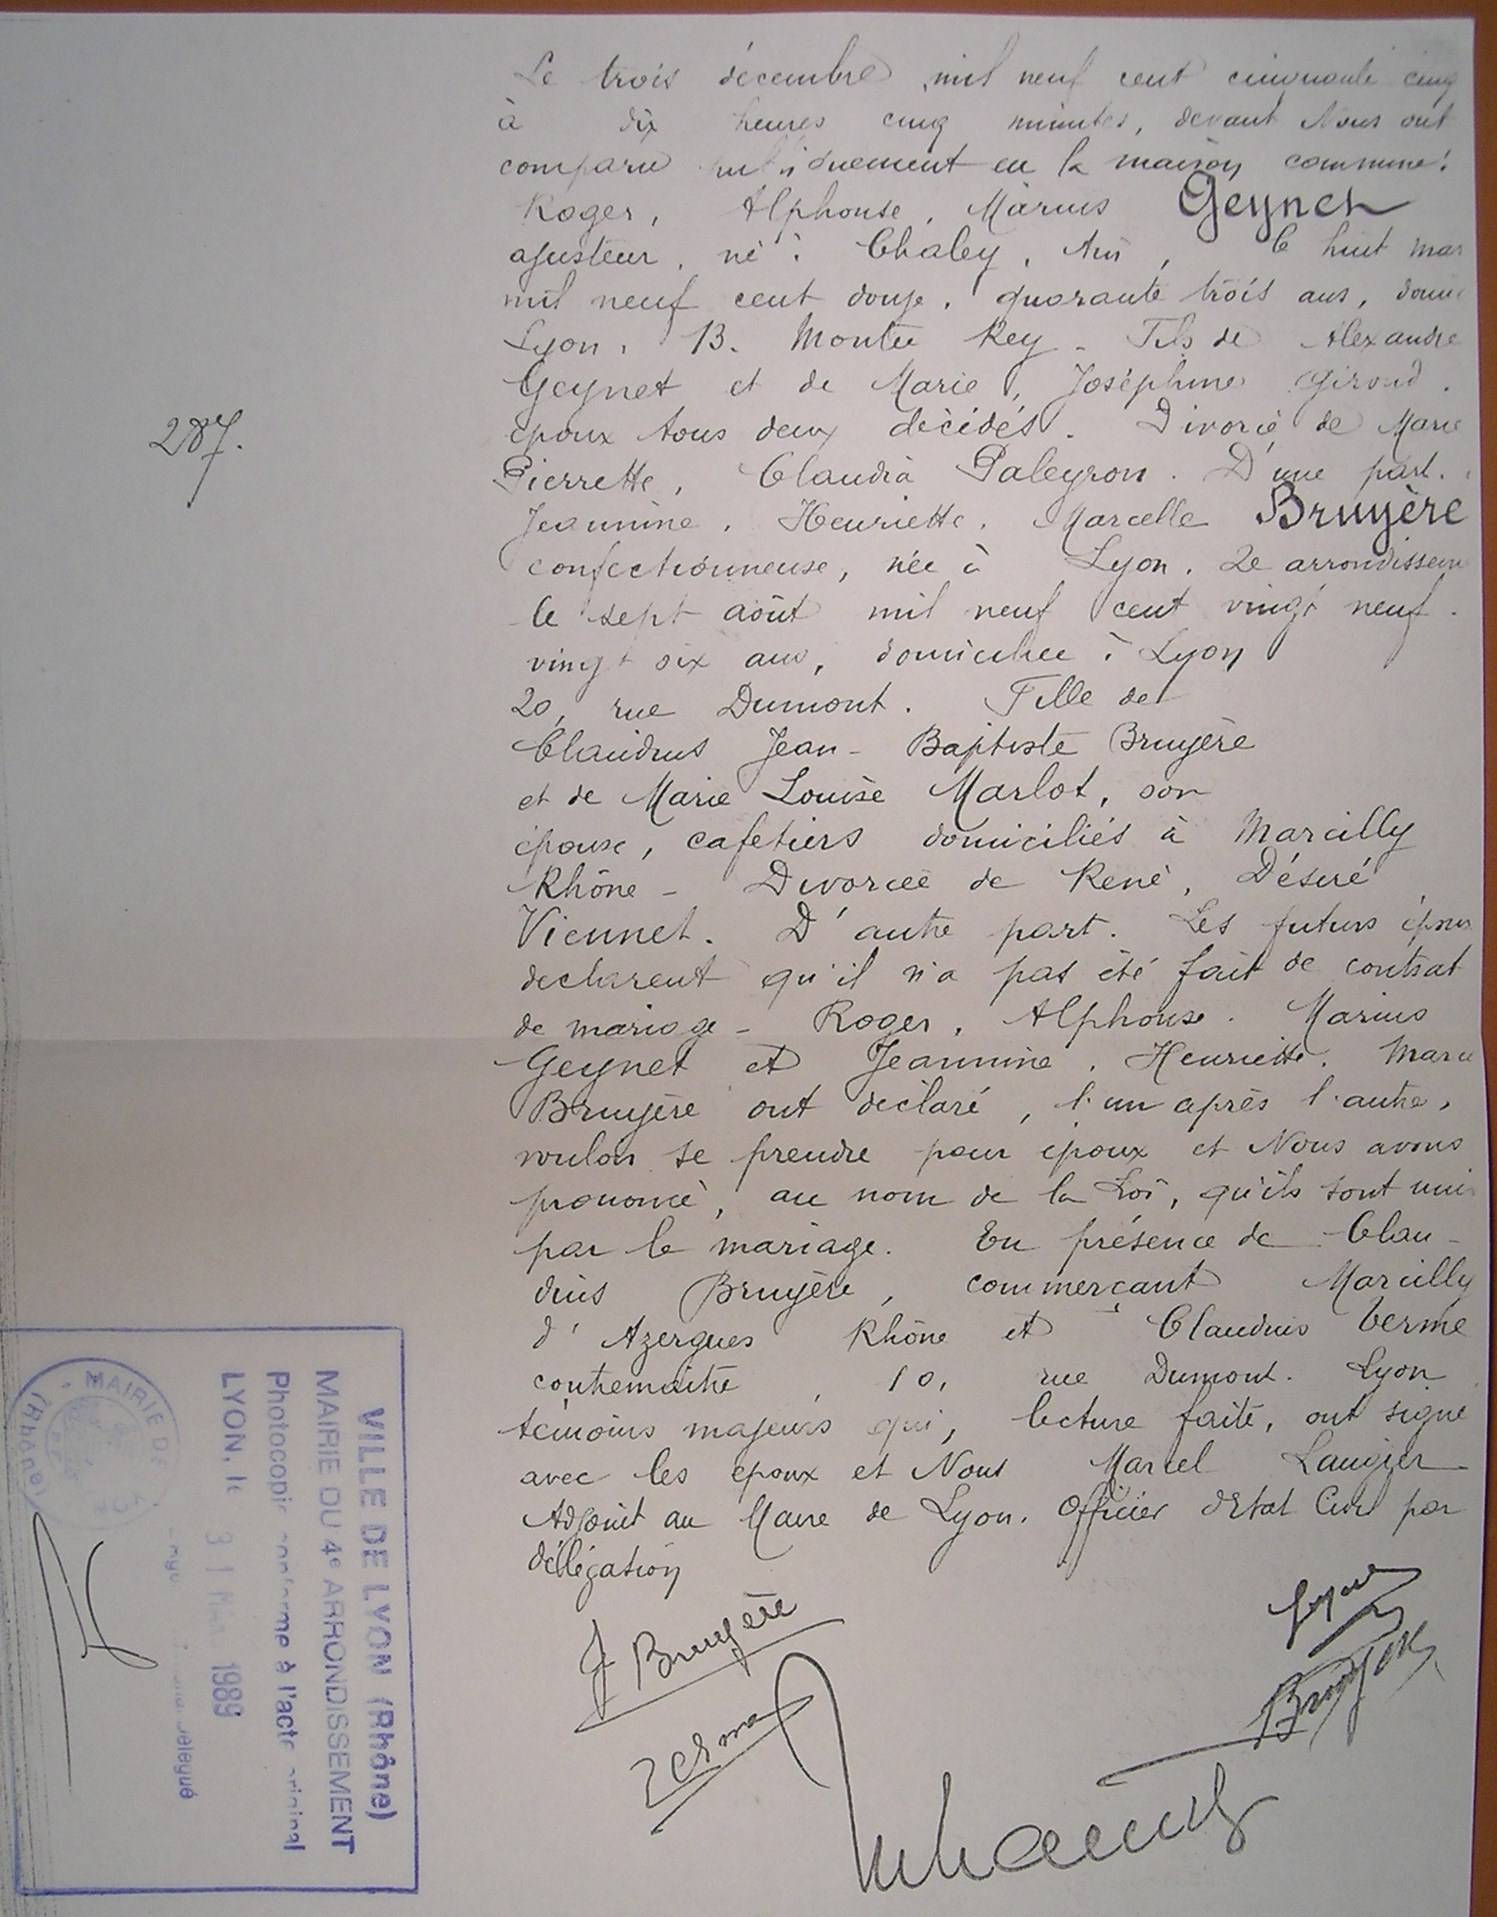 Le trois décembre mil neuf cent cinquante cinq
à dix heures cinq minutes, devant Nous ont
comparu publiquement en la maison commune:
Roger, Alphonse, Marius Geynet
ajusteur, né à Chaley, Ain, le huit mar
mil neuf cent douze, quarante trois ans, domi
Lyon, 13. Montée Rey - Fils de Alexandre
Geynet et de Marie, Joséphine Giroud.
époux tous deux décédés. Divorcé de Marie
287.
Pierrette, Claudia Paleyron. D'une part.
Jeannine, Henriette, Marcelle Bruyère
confectionneuse, née à Lyon, 2e arrondissem
le sept août mil neuf cent vingt neuf.
vingt six ans, domiciliée à Lyon
20, rue Dumont. Fille de
Claudius Jean-Baptiste Bruyère
et de Marie Louise Marlot, son
épouse, cafetiers domiciliés à Marcilly
Rhône - Divorcée de René, Désiré
Viennet. D'autre part. Les futurs époux
déclarent qu'il n'a pas été fait de contrat
de mariage - Roger, Alphonse. Marius
Geynet et Jeannine, Henriette. Marce
Bruyère ont déclaré, l'un après l'autre,
vouloir se prendre pour époux et Nous avons
prononcé, au nom de la Loi, qu'ils sont unis
par le mariage. En présence de Clau-
dius Bruyère, commerçant Marcilly
d'Azergues Rhône et Claudius Verme
contremaître, 10, rue Dumont. Lyon
témoins majeurs qui, lecture faite, ont signé
avec les époux et Nous Marcel Laugier
Adjoint au Maire de Lyon. Officier d'Etat Civil par
délégation
J Bruyère
Bruyère
VILLE DE LYON (Rhône)
MAIRIE DU 4e ARRONDISSEMENT
Photocopie conforme à l'acte original
LYON, le 31 1989
délégué
MAIRIE DE
(Rhône)